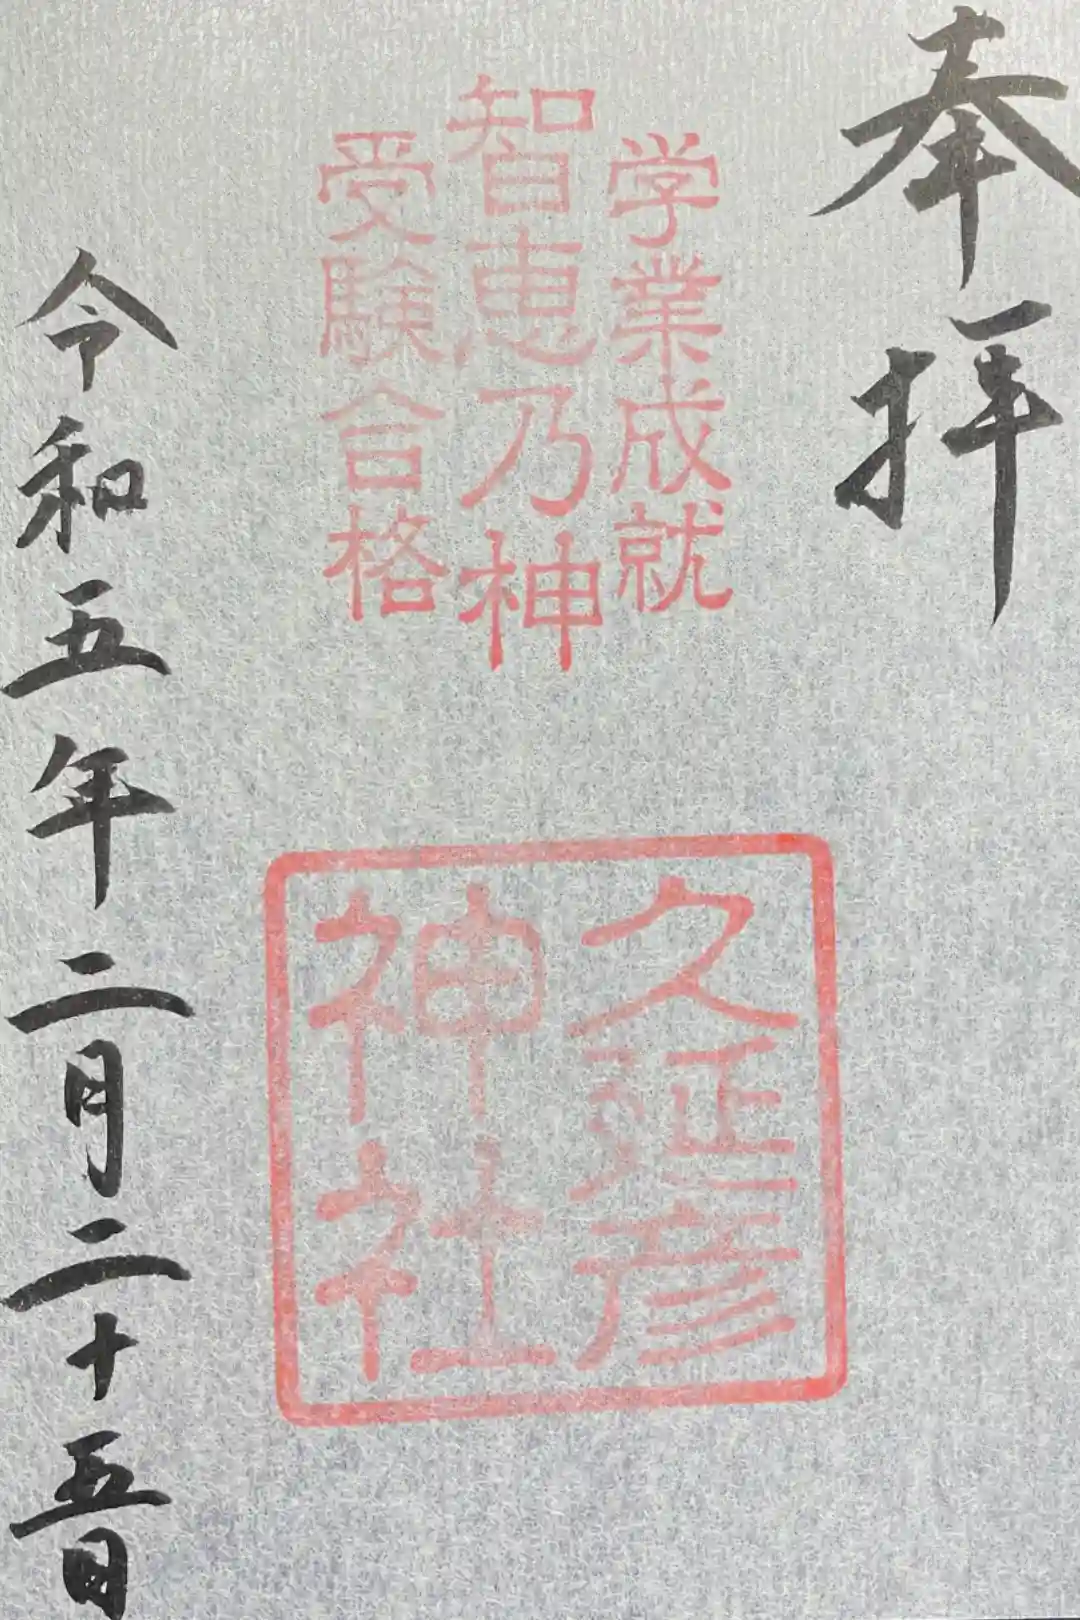 奉拝
学業成就
智恵乃神
受験合格
久延彦
神社
令和五年二月二十五日